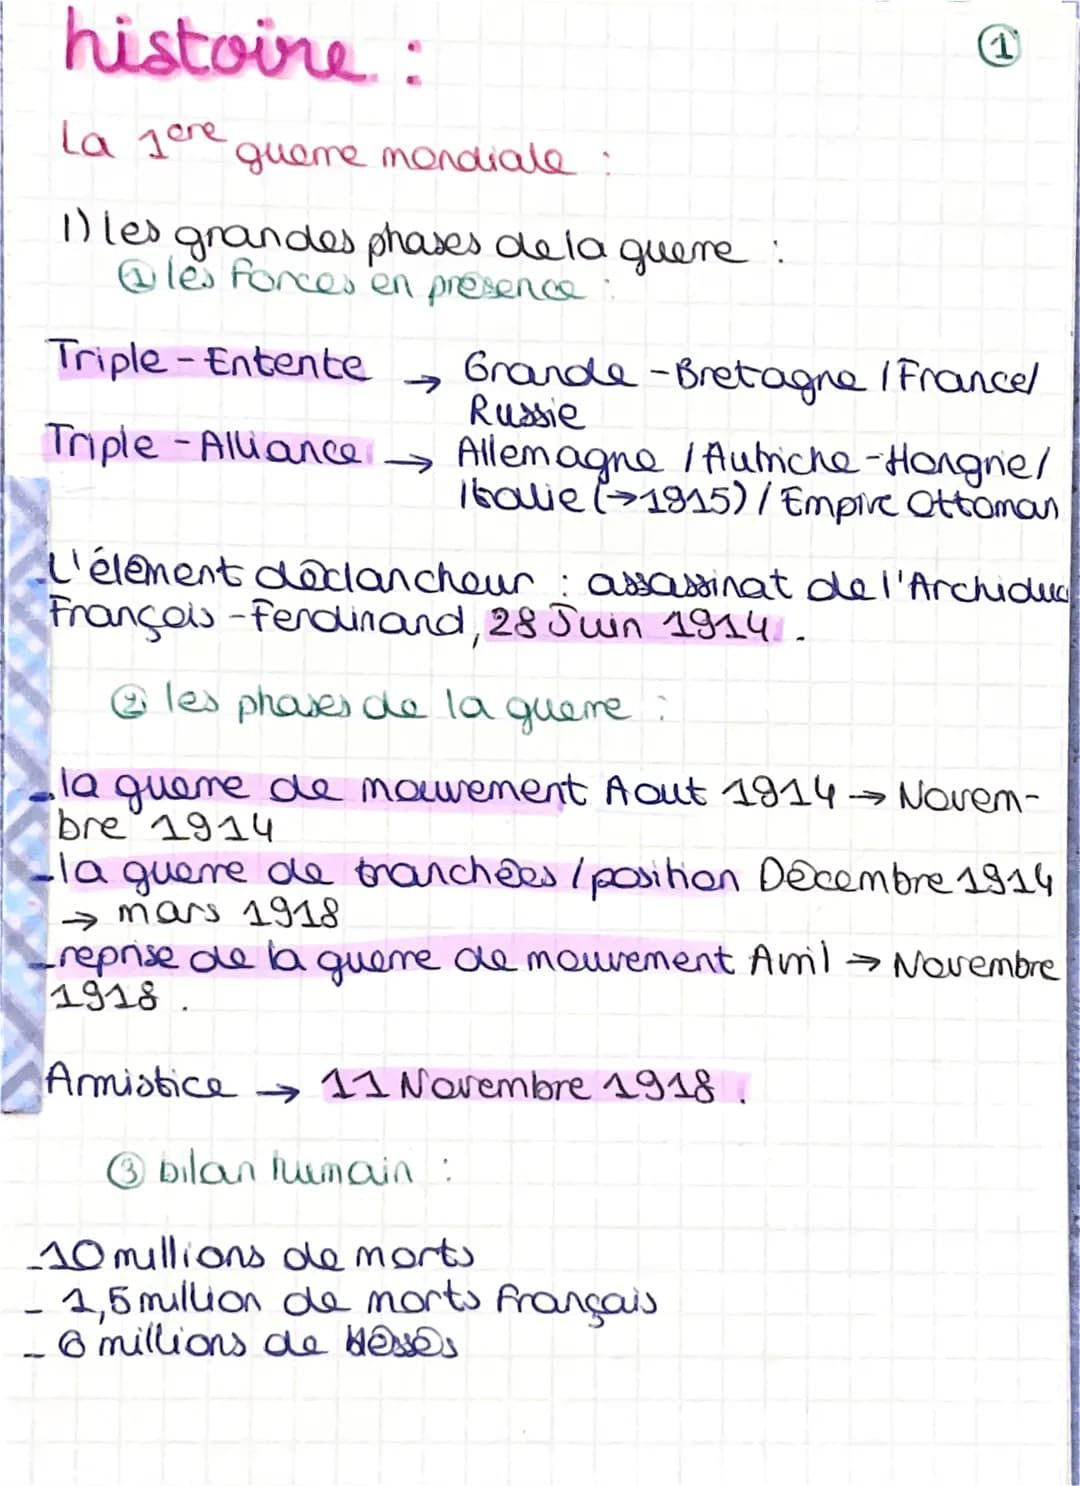 histoire :
1
La 1ere guerre mondiale :
1) les grandes phases de la guerre :
① les forces en présence :
Triple-Entente → Grande-Bretagne / France /
Russie
Triple-Alliance → Allemagne / Autriche-Hongrie /
Italie (→1915) / Empire Ottoman
L'élément déclancheur : assassinat de l'Archiduc
François-Ferdinand, 28 Juin 1914.
② les phases de la guerre :
- la guerre de mouvement Aout 1914 → Novem-
bre 1914
- la guerre de tranchées / position Décembre 1914
→ mars 1918
- reprise de la guerre de mouvement Avril → Novembre
1918.
Armistice → 11 Novembre 1918.
③ bilan humain :
- 10 millions de morts
- 1,5 million de morts français
- 6 millions de blessés